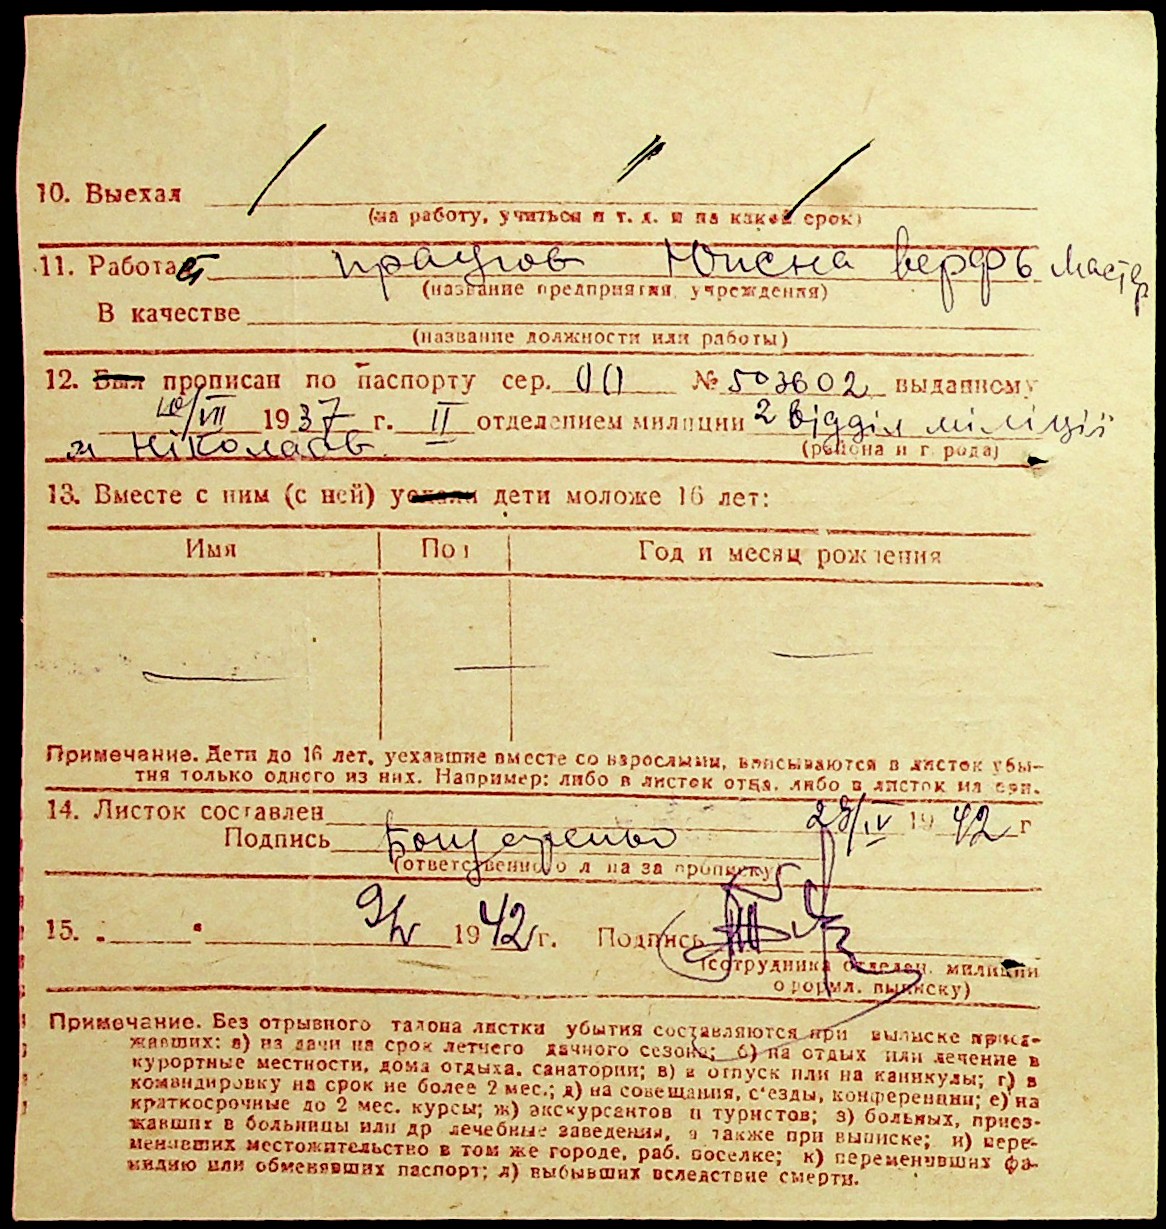 10. Выехал
(на работу, учиться и т. д. и на какой срок)
11. Работает працював Юпсна верфъ Мастер
(название предприятия, учреждения)
В качестве
(название должности или работы)
12. Был прописан по паспорту сер. № 503602 выданному
VII 1937 г. II отделением милиции 2 відділ міліції
(района и города)
м Ніколаєв
13. Вместе с ним (с ней) уехали дети моложе 16 лет:
Имя Пол Год и месяц рождения
Примечание. Дети до 16 лет, уехавшие вместе со взрослыми, вписываются в листок убы-
тия только одного из них. Например: либо в листок отца, либо в листок матери.
14. Листок составлен 28/IV 1942 г
Подпись Бондаренко
(ответственного лица за прописку)
15. 9/V 1942 г. Подпись
(сотрудника отделен. милиции
оформл. выписку)
Примечание. Без отрывного талона листки убытия составляются при выписке приез-
жавших: а) из дачи на срок летнего дачного сезона; б) на отдых или лечение в
курортные местности, дома отдыха, санатории; в) в отпуск или на каникулы; г) в
командировку на срок не более 2 мес.; д) на совещания, с'езды, конференции; е) на
краткосрочные до 2 мес. курсы; ж) экскурсантов и туристов; з) больных, приез-
жавших в больницы или др лечебные заведения, а также при выписке; и) пере-
менивших местожительство в том же городе, раб. поселке; к) переменивших фа-
милию или обменявших паспорт; л) выбывших вследствие смерти.